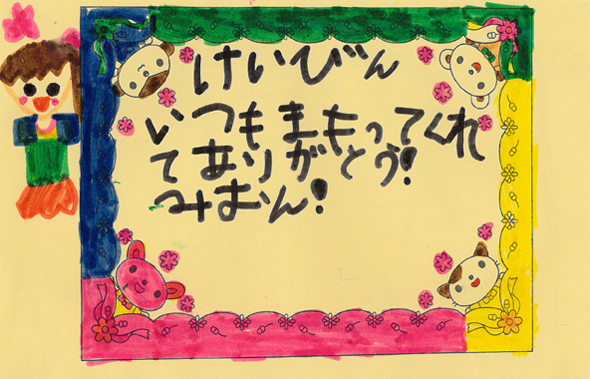 けいびん
いつもまもってくれ
てありがとう!
みおん!